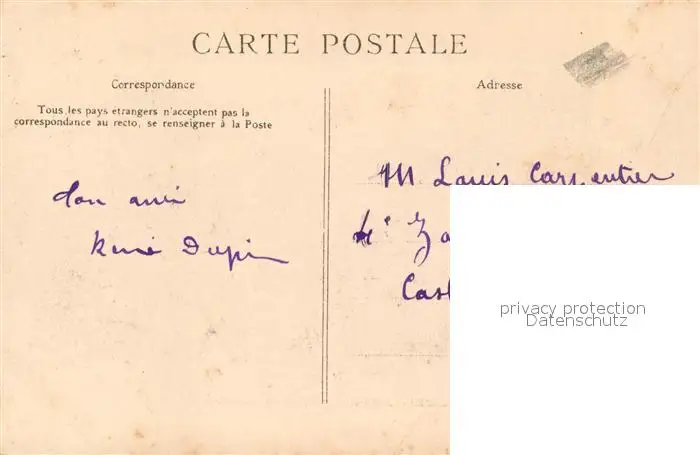 CARTE POSTALE
Correspondance
Tous les pays étrangers n'acceptent pas la
correspondance au recto, se renseigner à la Poste
Ton ami
René Dupin
Adresse
M Louis Carpentier
4e Za
Cast
privacy protection
Datenschutz